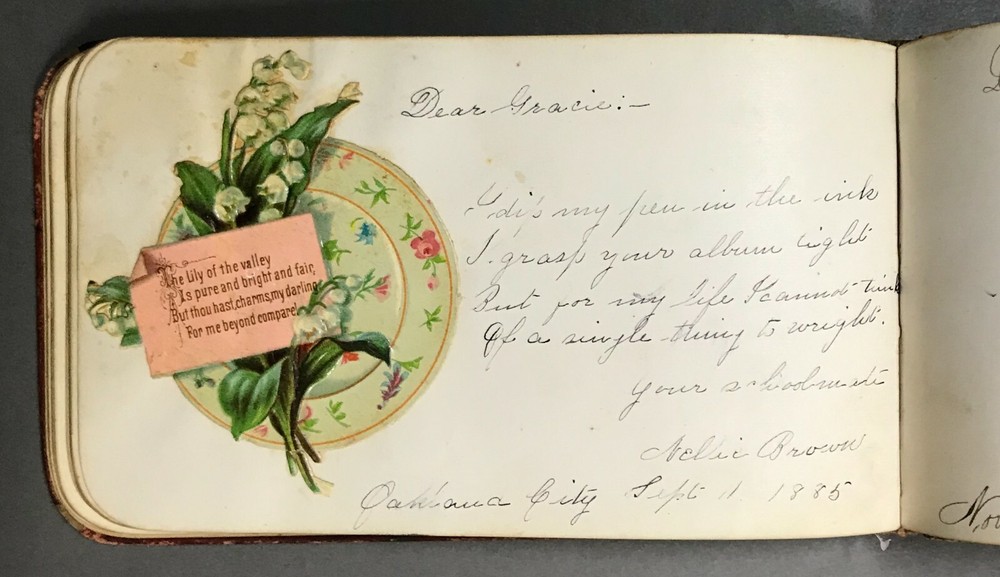 The lily of the valley
Is pure and bright and fair,
But thou hast, charms, my darling
For me beyond compare!
Dear Gracie:—
I dip my pen in the ink
I grasp your album tight
But for my life I cannot think
Of a single thing to wright.
your schoolmate
Nellie Brown
Oakland City Sept 11 1885